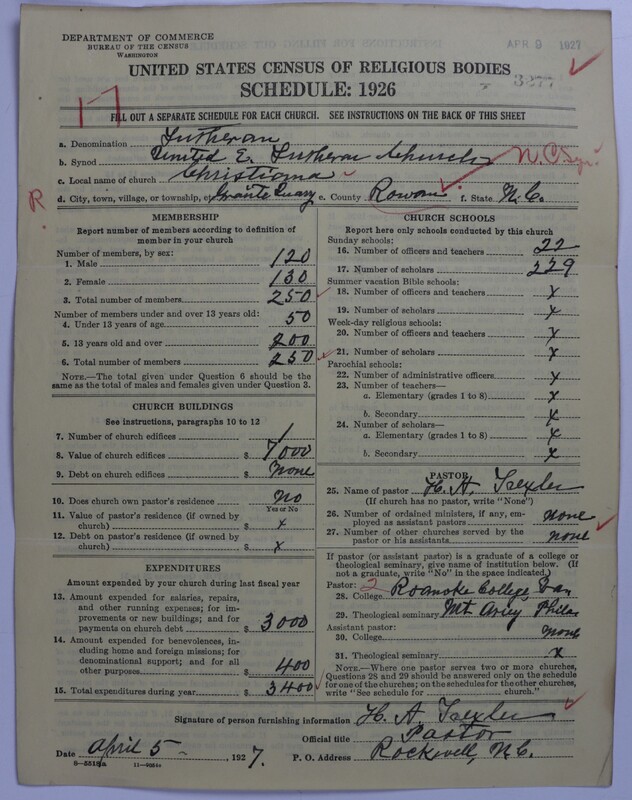 DEPARTMENT OF COMMERCE
BUREAU OF THE CENSUS
WASHINGTON
APR 9 1927
UNITED STATES CENSUS OF RELIGIOUS BODIES
SCHEDULE: 1926
3277
17
FILL OUT A SEPARATE SCHEDULE FOR EACH CHURCH. SEE INSTRUCTIONS ON THE BACK OF THIS SHEET
a. Denomination Lutheran
b. Synod United E. Lutheran Church N.C. Syn.
c. Local name of church Christiana
R d. City, town, village, or township, etc. Granite Quary e. County Rowan f. State N.C.
MEMBERSHIP
Report number of members according to definition of
member in your church
Number of members, by sex:
1. Male 120
2. Female 130
3. Total number of members 250
Number of members under and over 13 years old:
4. Under 13 years of age 50
5. 13 years old and over 200
6. Total number of members 250
NOTE.—The total given under Question 6 should be the
same as the total of males and females given under Question 3.
CHURCH BUILDINGS
See instructions, paragraphs 10 to 12
7. Number of church edifices 1
8. Value of church edifices $ 7000
9. Debt on church edifices $ None
10. Does church own pastor's residence no
Yes or No
11. Value of pastor's residence (if owned by
church) $ x
12. Debt on pastor's residence (if owned by
church) $ x
EXPENDITURES
Amount expended by your church during last fiscal year
13. Amount expended for salaries, repairs,
and other running expenses; for im-
provements or new buildings; and for
payments on church debt $ 3000
14. Amount expended for benevolences, in-
cluding home and foreign missions; for
denominational support; and for all
other purposes $ 400
15. Total expenditures during year $ 3400
CHURCH SCHOOLS
Report here only schools conducted by this church
Sunday schools:
16. Number of officers and teachers 22
17. Number of scholars 229
Summer vacation Bible schools:
18. Number of officers and teachers x
19. Number of scholars x
Week-day religious schools:
20. Number of officers and teachers x
21. Number of scholars x
Parochial schools:
22. Number of administrative officers x
23. Number of teachers—
a. Elementary (grades 1 to 8) x
b. Secondary x
24. Number of scholars—
a. Elementary (grades 1 to 8) x
b. Secondary x
PASTOR
25. Name of pastor H. A. Trexler
(If church has no pastor, write "None")
26. Number of ordained ministers, if any, em-
ployed as assistant pastors none
27. Number of other churches served by the
pastor or his assistants none
If pastor (or assistant pastor) is a graduate of a college or
theological seminary, give name of institution below. (If
not a graduate, write "No" in the space indicated.)
Pastor: 2
28. College Roanoke College
29. Theological seminary Mt Airy Phila
Assistant pastor:
30. College None
31. Theological seminary x
NOTE.—Where one pastor serves two or more churches,
Questions 28 and 29 should be answered only on the schedule
for one of the churches; on the schedules for the other churches,
write "See schedule for church."
Signature of person furnishing information H. A. Trexler
Official title Pastor
Date April 5, 1927. P. O. Address Rockwell, N.C.
8—5518a 11—9984